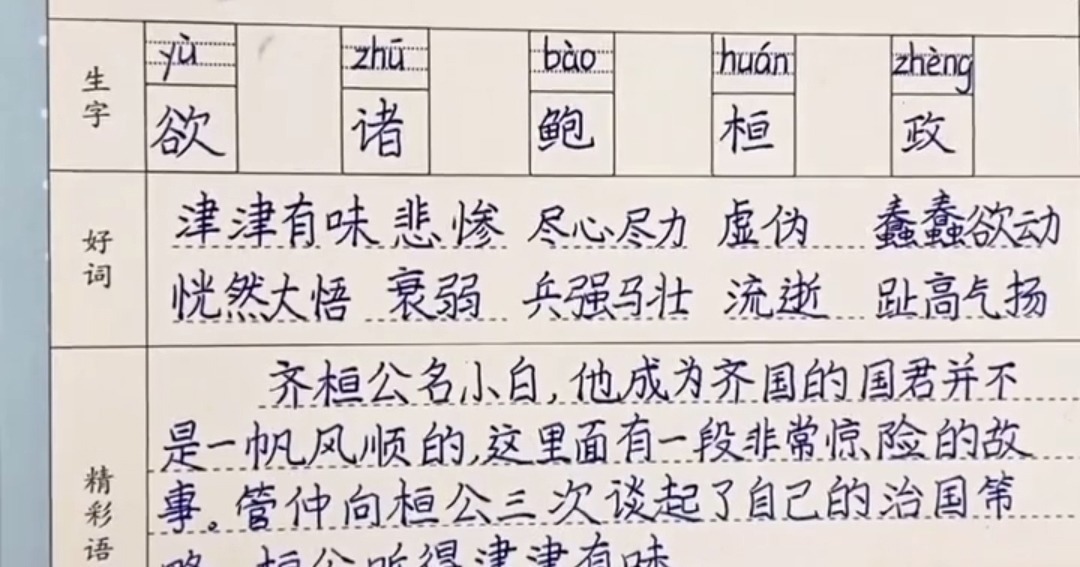 yù zhū bào huán zhèng
生字 欲 诸 鲍 桓 政
好词
津津有味 悲惨 尽心尽力 虚伪 蠢蠢欲动
恍然大悟 衰弱 兵强马壮 流逝 趾高气扬
精彩语
齐桓公名小白,他成为齐国的国君并不
是一帆风顺的,这里面有一段非常惊险的故
事。管仲向桓公三次谈起了自己的治国策
略,桓公听得津津有味